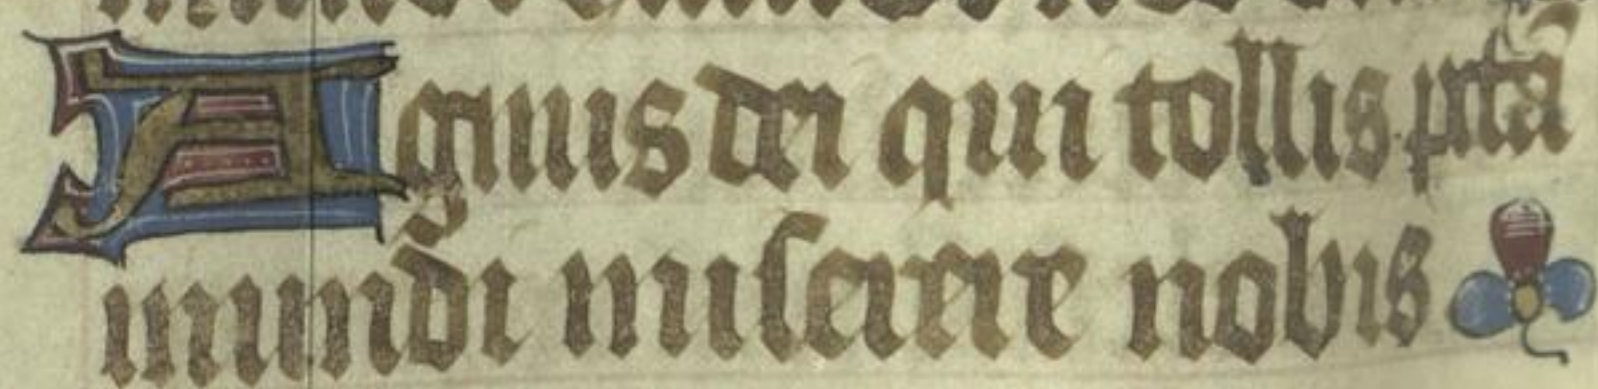 Agnus dei qui tollis pctā
mundi miserere nobis